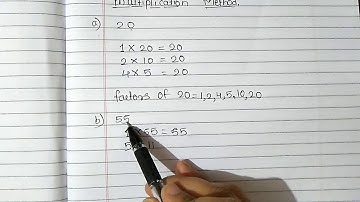 Multiplication Method.
a) 20
1 × 20 = 20
2 × 10 = 20
4 × 5 = 20
factors of 20 = 1, 2, 4, 5, 10, 20
b) 55
55 = 55
5 11